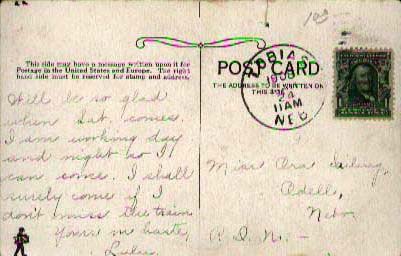 This side may have a message written upon it for
Postage in the United States and Europe. The right
hand side must be reserved for stamp and address.
Will be so glad
when Sat. comes.
I am working day
and night so I
can come. I shall
surely come if I
don't miss the train
Yours in haste,
Lulu.
POST CARD
THE ADDRESS TO BE WRITTEN ON
THIS SIDE
TOBIAS
1908
24
11AM
NEB
Miss Ora
Odell,
Nebr.
R.D. No. -